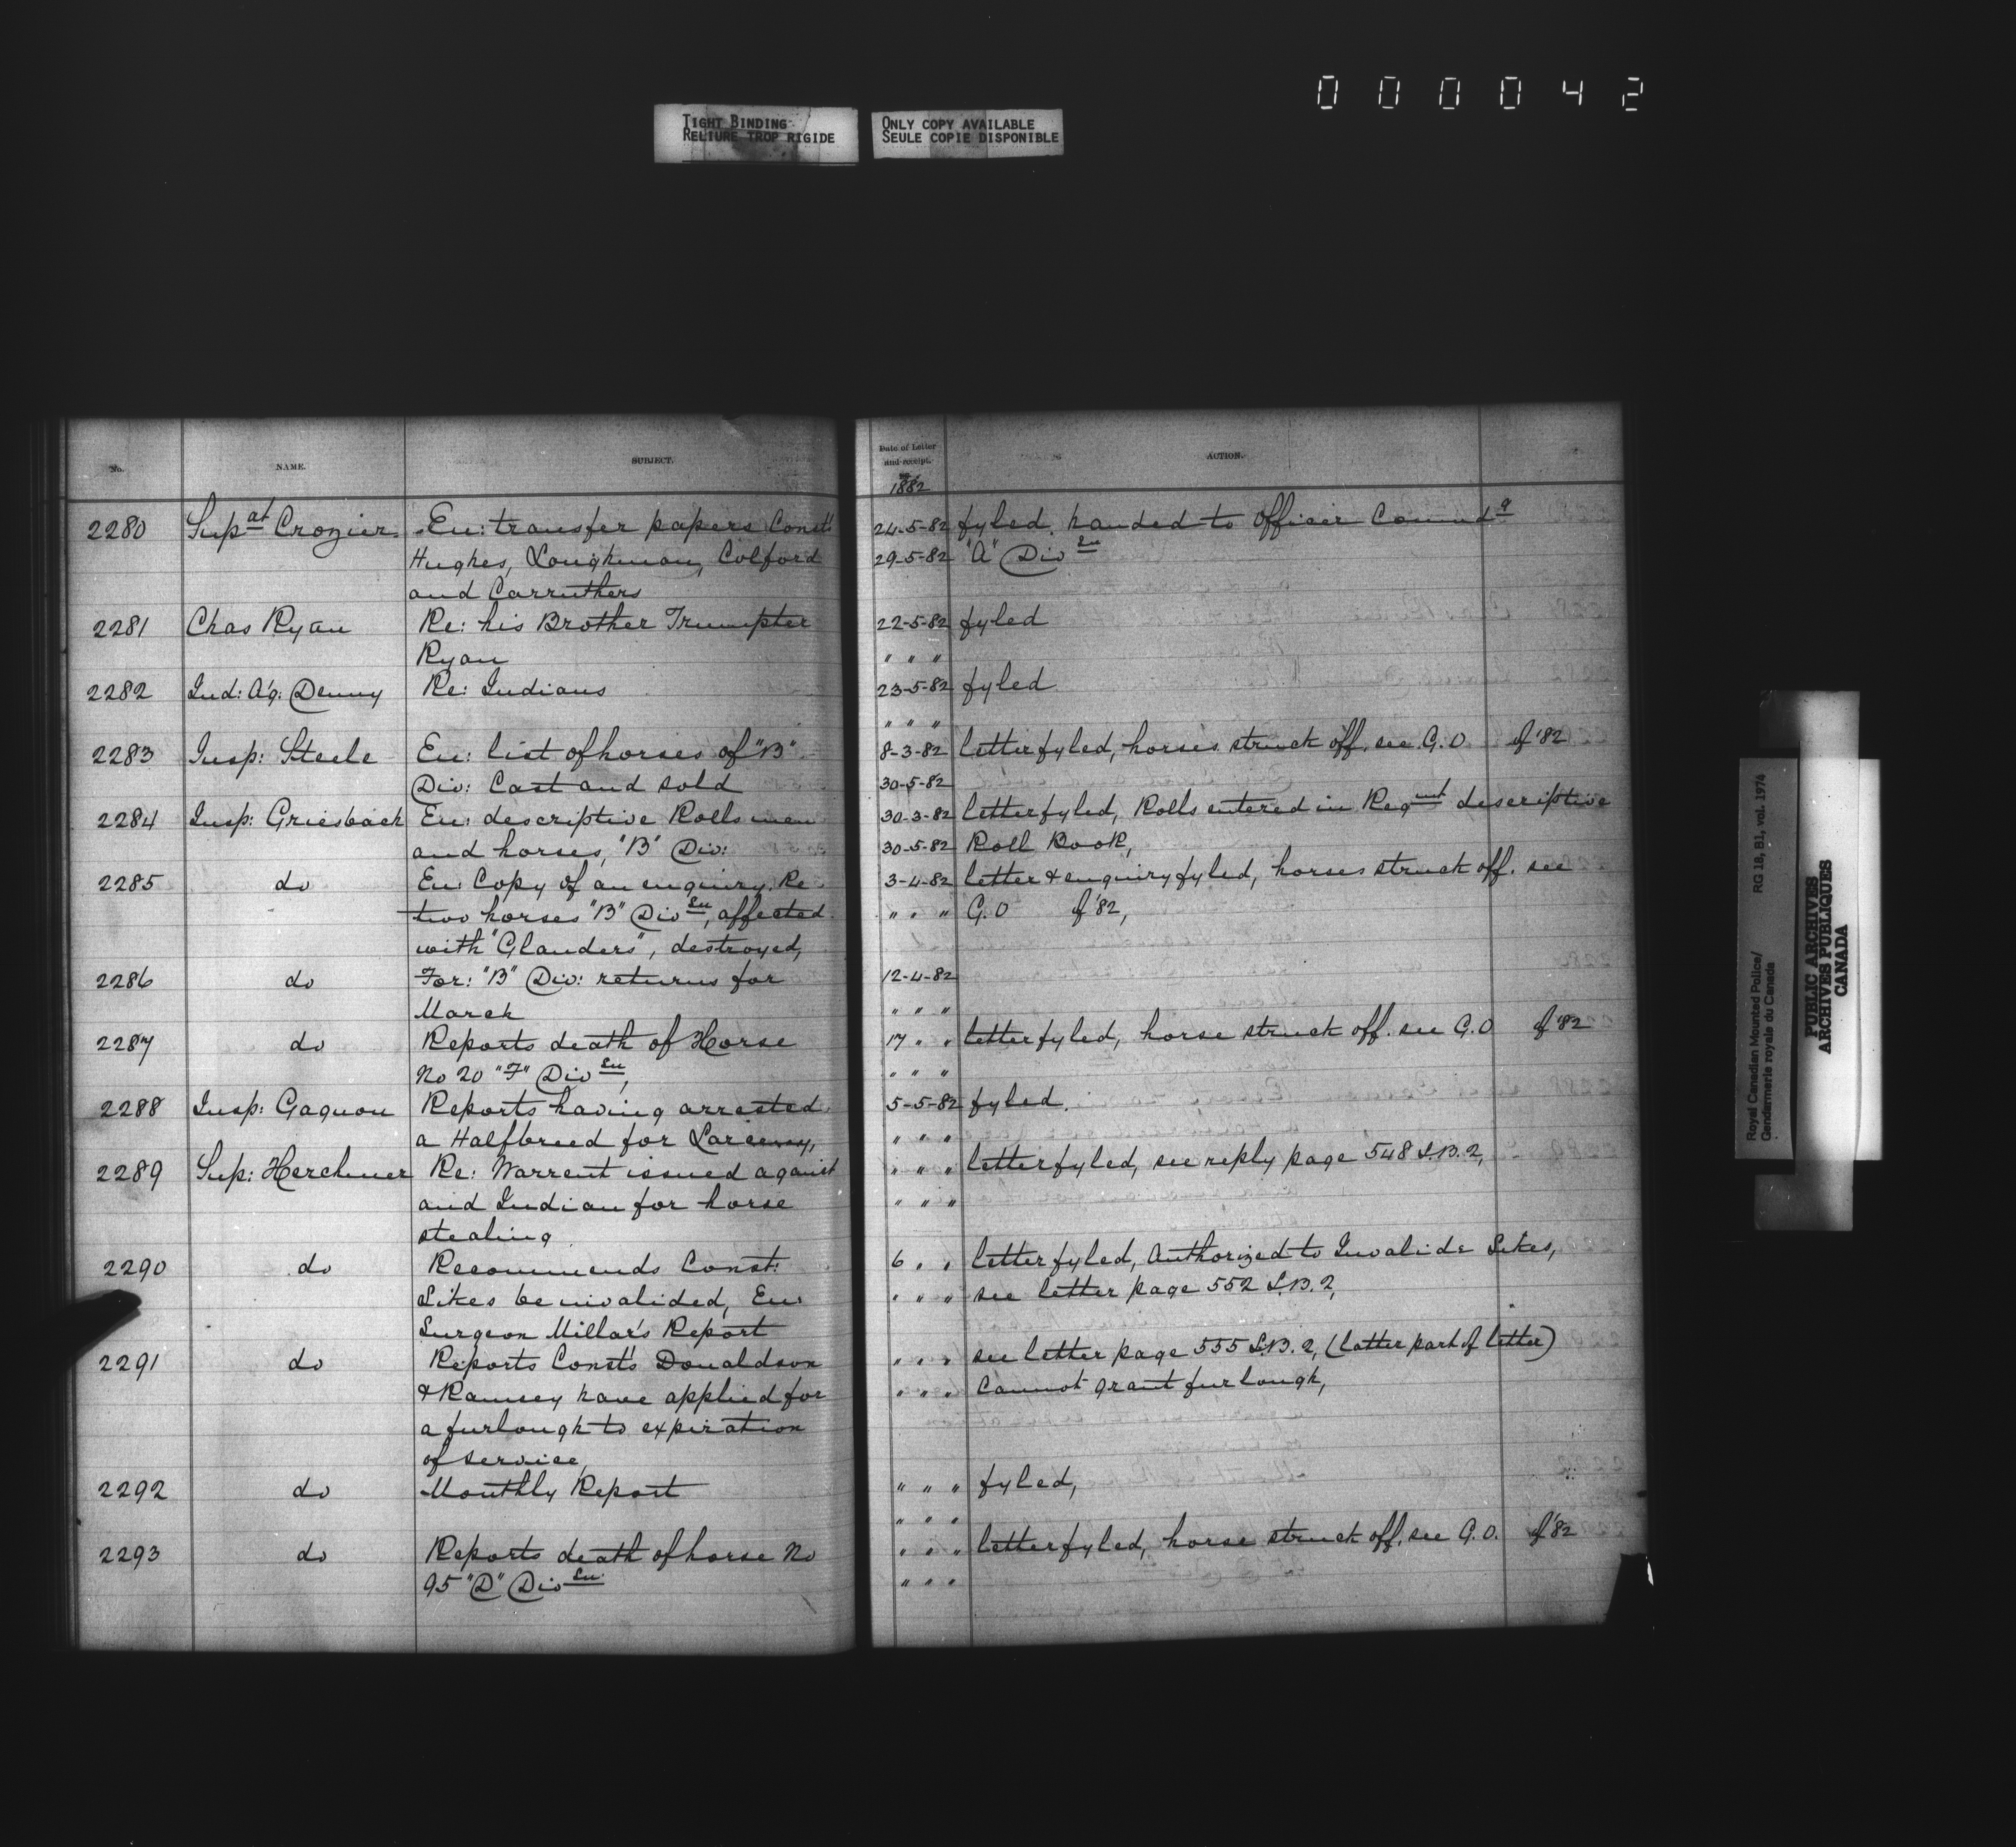 000042
TIGHT BINDING
RELIURE TROP RIGIDE
ONLY COPY AVAILABLE
SEULE COPIE DISPONIBLE
No. NAME. SUBJECT.
2280 Supat Crozier. En: transfer papers Const's
Hughes, Loughman, Colford
and Carruthers
2281 Chas Ryan Re: his Brother Trumpter
Ryan
2282 Ind: Ag: Denny Re: Indians
2283 Insp: Steele En: list of horses of "B"
Div: Cast and sold
2284 Insp: Griesbach En: descriptive Rolls men
and horses, "B" Div:
2285 do En: Copy of an enquiry Re
two horses "B" Divsn, affected
with "Glanders", destroyed,
2286 do For: "B" Div: returns for
March
2287 do Reports death of Horse
No 20 "F" Divsn,
2288 Insp: Gagnon Reports having arrested
a Halfbreed for Larceny,
2289 Sup: Herchmer Re: Warrent issued against
and Indian for horse
stealing
2290 do Recommends Const:
Sikes be invalided, En:
Surgeon Millar's Report
2291 do Reports Const's Donaldson
& Ramsey have applied for
a furlough to expiration
of service,
2292 do Monthly Report
2293 do Reports death of horse No
95 "D" Divsn
Date of Letter
and receipt. ACTION.
1882
24-5-82 fyled. handed to Officer Commdg
29-5-82 "A" Divsn
22-5-82 fyled
" " "
23-5-82 fyled
" " "
8-3-82 letter fyled, horses struck off. see G.O of '82
30-5-82
30-3-82 letter fyled, Rolls entered in Regmt descriptive
30-5-82 Roll Book,
3-4-82 letter & enquiry fyled, horses struck off. see
" " " G.O of '82,
12-4-82
" " "
17 " " letter fyled, horse struck off. see G.O of '82
" " "
5-5-82 fyled.
" " "
" " " letter fyled, see reply page 548 L.B. 2,
" " "
6 " " letter fyled, Authorized to Invalide Sikes,
" " " see letter page 552 L.B. 2,
" " " see letter page 555 L.B. 2, (latter part of letter)
" " " Cannot grant furlough,
" " " fyled,
" " "
" " " letter fyled, horse struck off. see G.O. of '82
" " "
Royal Canadian Mounted Police/ RG 18, B1, vol. 1974
Gendarmerie royale du Canada
PUBLIC ARCHIVES
ARCHIVES PUBLIQUES
CANADA